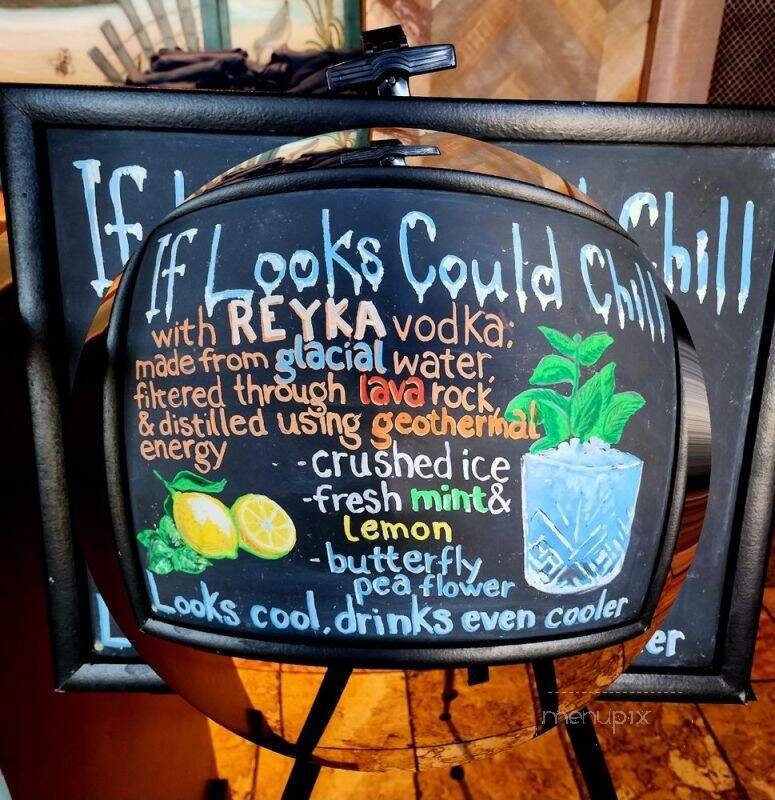 If Looks Could Chill
with REYKA vodka;
made from glacial water,
filtered through lava rock,
& distilled using geothermal
energy
-crushed ice
-fresh mint &
lemon
-butterfly
pea flower
Looks cool, drinks even cooler
If Chill
er
menupix